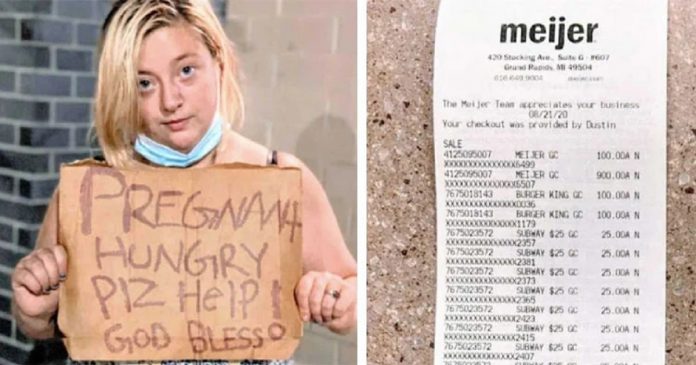 PREGNANT
HUNGRY
PLZ HELP!
GOD BLESS
meijer
420 Stocking Ave., Suite G - #607
Grand Rapids, MI 49504
616-649-9004 meijer.com
The Meijer Team appreciates your business
08/21/20
Your checkout was provided by Dustin
SALE
4125095007 MEIJER GC 100.00A N
XXXXXXXXXXXXXXX6499
4125095007 MEIJER GC 900.00A N
XXXXXXXXXXXXXXX6507
7675018143 BURGER KING GC 100.00A N
XXXXXXXXXXXXXXX0036
7675018143 BURGER KING GC 100.00A N
XXXXXXXXXXXXXXX1179
7675023572 SUBWAY $25 GC 25.00A N
XXXXXXXXXXXXXXX2357
7675023572 SUBWAY $25 GC 25.00A N
XXXXXXXXXXXXXXX2381
7675023572 SUBWAY $25 GC 25.00A N
XXXXXXXXXXXXXXX2373
7675023572 SUBWAY $25 GC 25.00A N
XXXXXXXXXXXXXXX2365
7675023572 SUBWAY $25 GC 25.00A N
XXXXXXXXXXXXXXX2423
7675023572 SUBWAY $25 GC 25.00A N
XXXXXXXXXXXXXXX2415
7675023572 SUBWAY $25 GC 25.00A N
XXXXXXXXXXXXXXX2407